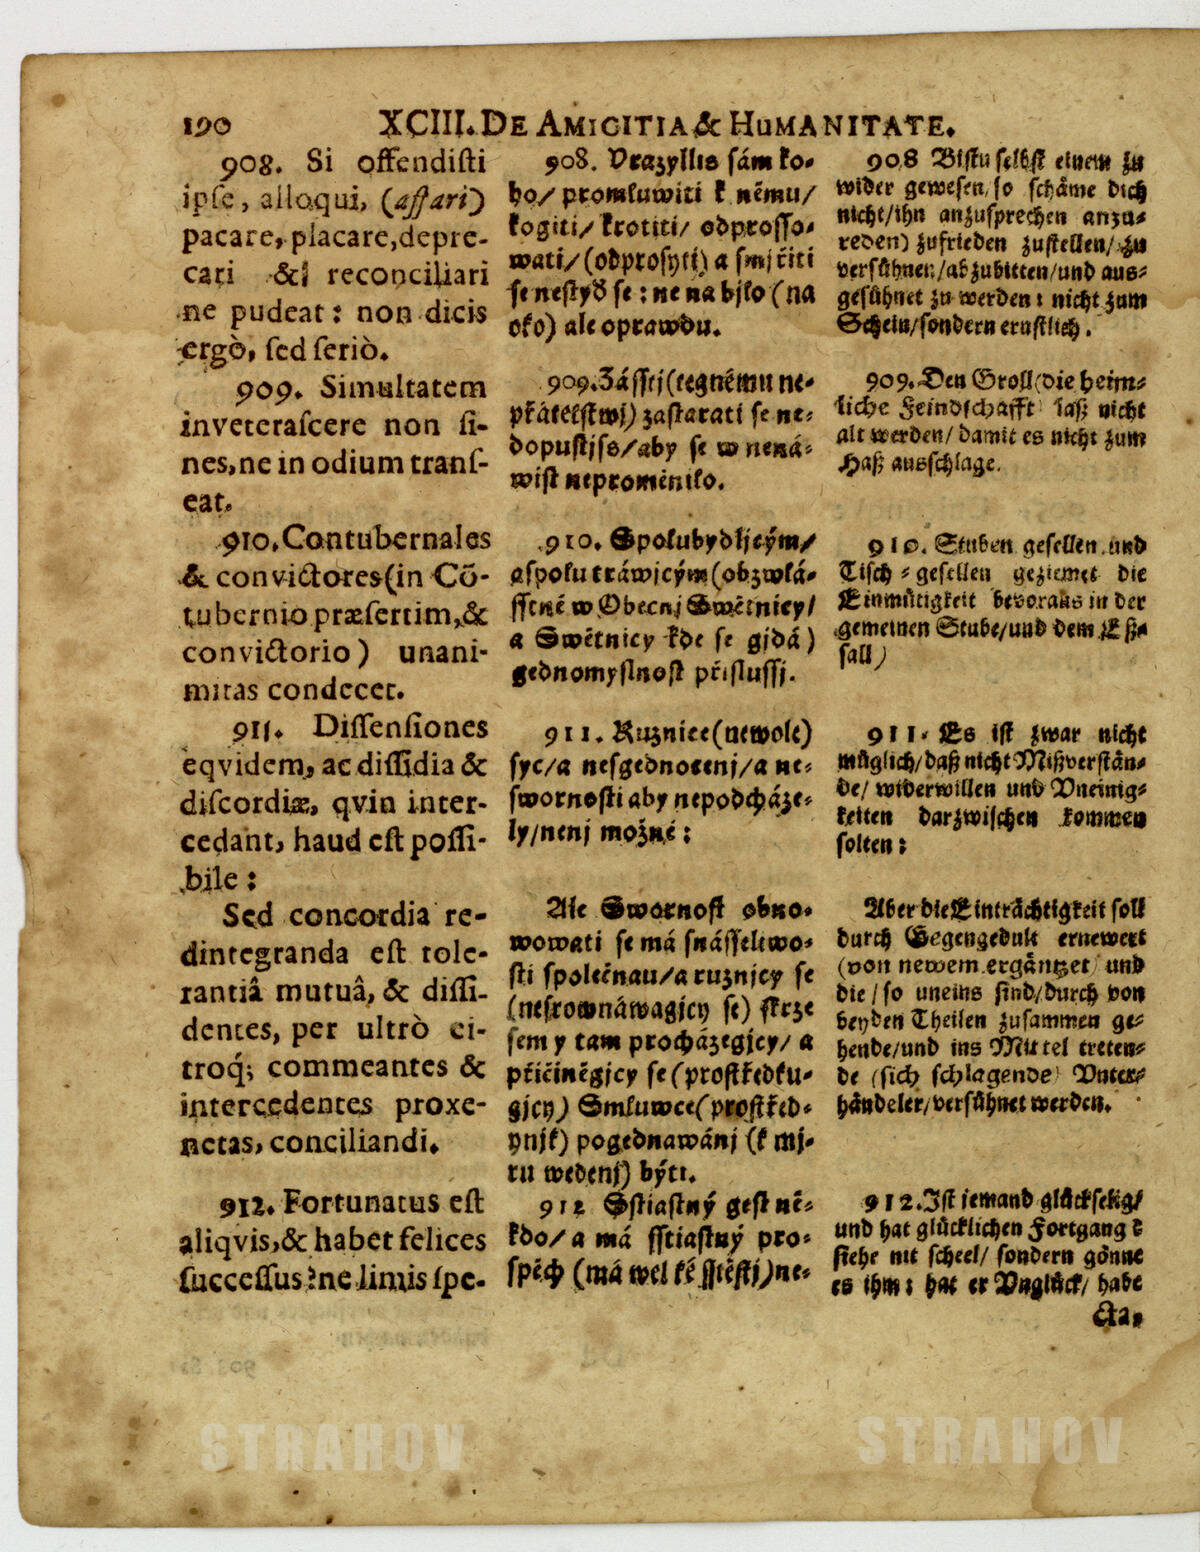 190 XCIII. DE AMICITIA & HUMANITATE.
908. Si offendiſti
ipſe, alloqui, (affari)
pacare, placare, depre-
cari & reconciliari
ne pudeat: non dicis
ergò, ſed ſeriò.
909. Simultatem
inveteraſcere non ſi-
nes, ne in odium tranſ-
eat.
910. Contubernales
& convictores (in Cõ-
tubernio præſertim, &
convictorio) unani-
mitas condecet.
911. Diſſenſiones
eqvidem, ac diſſidia &
diſcordiæ, qvin inter-
cedant, haud eſt poſſi-
bile:
Sed concordia re-
dintegranda eſt tole-
rantiâ mutuâ, & diſſi-
dentes, per ultrò ci-
troq́; commeantes &
intercedentes proxe-
netas, conciliandi.
912. Fortunatus eſt
aliqvis, & habet felices
ſucceſſus? ne limis ſpe-
908. Vrazyllis ſám ko-
ho/ promluwiti k němu/
kogiti/ krotiti/ odproſſo-
wati/ (odproſyti) a ſmjřiti
ſe neſtyď ſe: ne na bjlo (na
oko) ale oprawdu.
909. Zásſtj (tegnému ne-
přátelſtwj) zaſtarati ſe ne-
dopuſtjſs/ aby ſe w nená-
wiſt neproměnilo.
910. Spolubydljcým/
a ſpolu tráwjcým (obzwlá-
ſſtně w Obecnj Swětnicy/
a Swětnicy kde ſe gjdá)
gednomyſlnoſt přjſluſſj.
911. Ruznice (newole)
ſyc/ a neſgednocenj/ a ne-
ſwornoſti aby nepodcháze-
ly/ nenj možné:
Ale Swornoſt obno-
wowati ſe má ſnáſſeliwo-
ſti ſpolečnau/ a ruznjcy ſe
(neſrownáwagjcy ſe) ſkrze
ſem y tam procházegjcy/ a
přičiněgjcy ſe (proſtředku-
gjcy) Smluwce (proſtřed-
ynjk) pogednawánj (k mj-
ru wedenj) býti.
912 Sſtiaſtný geſt ně-
kdo/ a má ſſtiaſtný pro-
ſpěch (má welké ſſtěſtj) ne-
908 Biſtu ſelbſt einem zu
wider geweſen, ſo ſchäme dich
nicht/ ihn anzuſprechen anzu-
reden) zufrieden zuſtellen/ zu
verſühnen/ abzubitten/ und aus-
geſühnet zu werden: nicht zum
Schein/ ſondern ernſtlich.
909. Den Groll (die heim-
liche Feindſchafft) laß nicht
alt werden/ damit es nicht zum
Haß ausſchlage.
910. Stuben geſellen und
Tiſch-geſellen geziemet die
Einmütigkeit bevoraus in der
gemeinen Stube/ und dem Eß-
ſall)
911. Es iſt zwar nicht
müglich/ daß nicht Mißverſtän-
de/ widerwillen und Vneinig-
keiten darzwiſchen kommen
ſolten:
Aber die Einträchtigkeit ſoll
durch Gegengedult ernewert
(von newem ergäntzet) und
die/ ſo uneins ſind/ durch von
beyden Theilen zuſammen ge-
hende/ und ins Mittel treten-
de (ſich ſchlagende) Vnter-
händeler/ verſühnet werden.
912. Iſt iemand glückſelig/
und hat glücklichen Fortgang?
ſiehe nit ſcheel/ ſondern gönne
es ihm: hat er Vnglück/ habe
cta-
STRAHOV STRAHOV